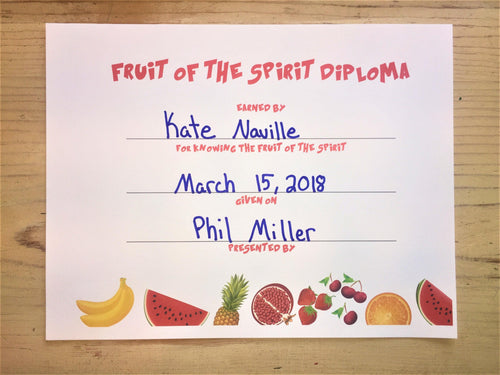 FRUIT OF THE SPIRIT DIPLOMA
EARNED BY
Kate Naville
FOR KNOWING THE FRUIT OF THE SPIRIT
March 15, 2018
GIVEN ON
Phil Miller
PRESENTED BY